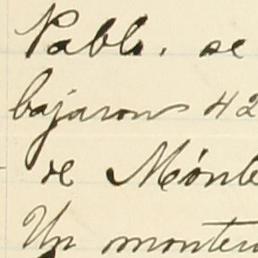 Pablo. se
bajaron 42
de Mónte
Un monteu